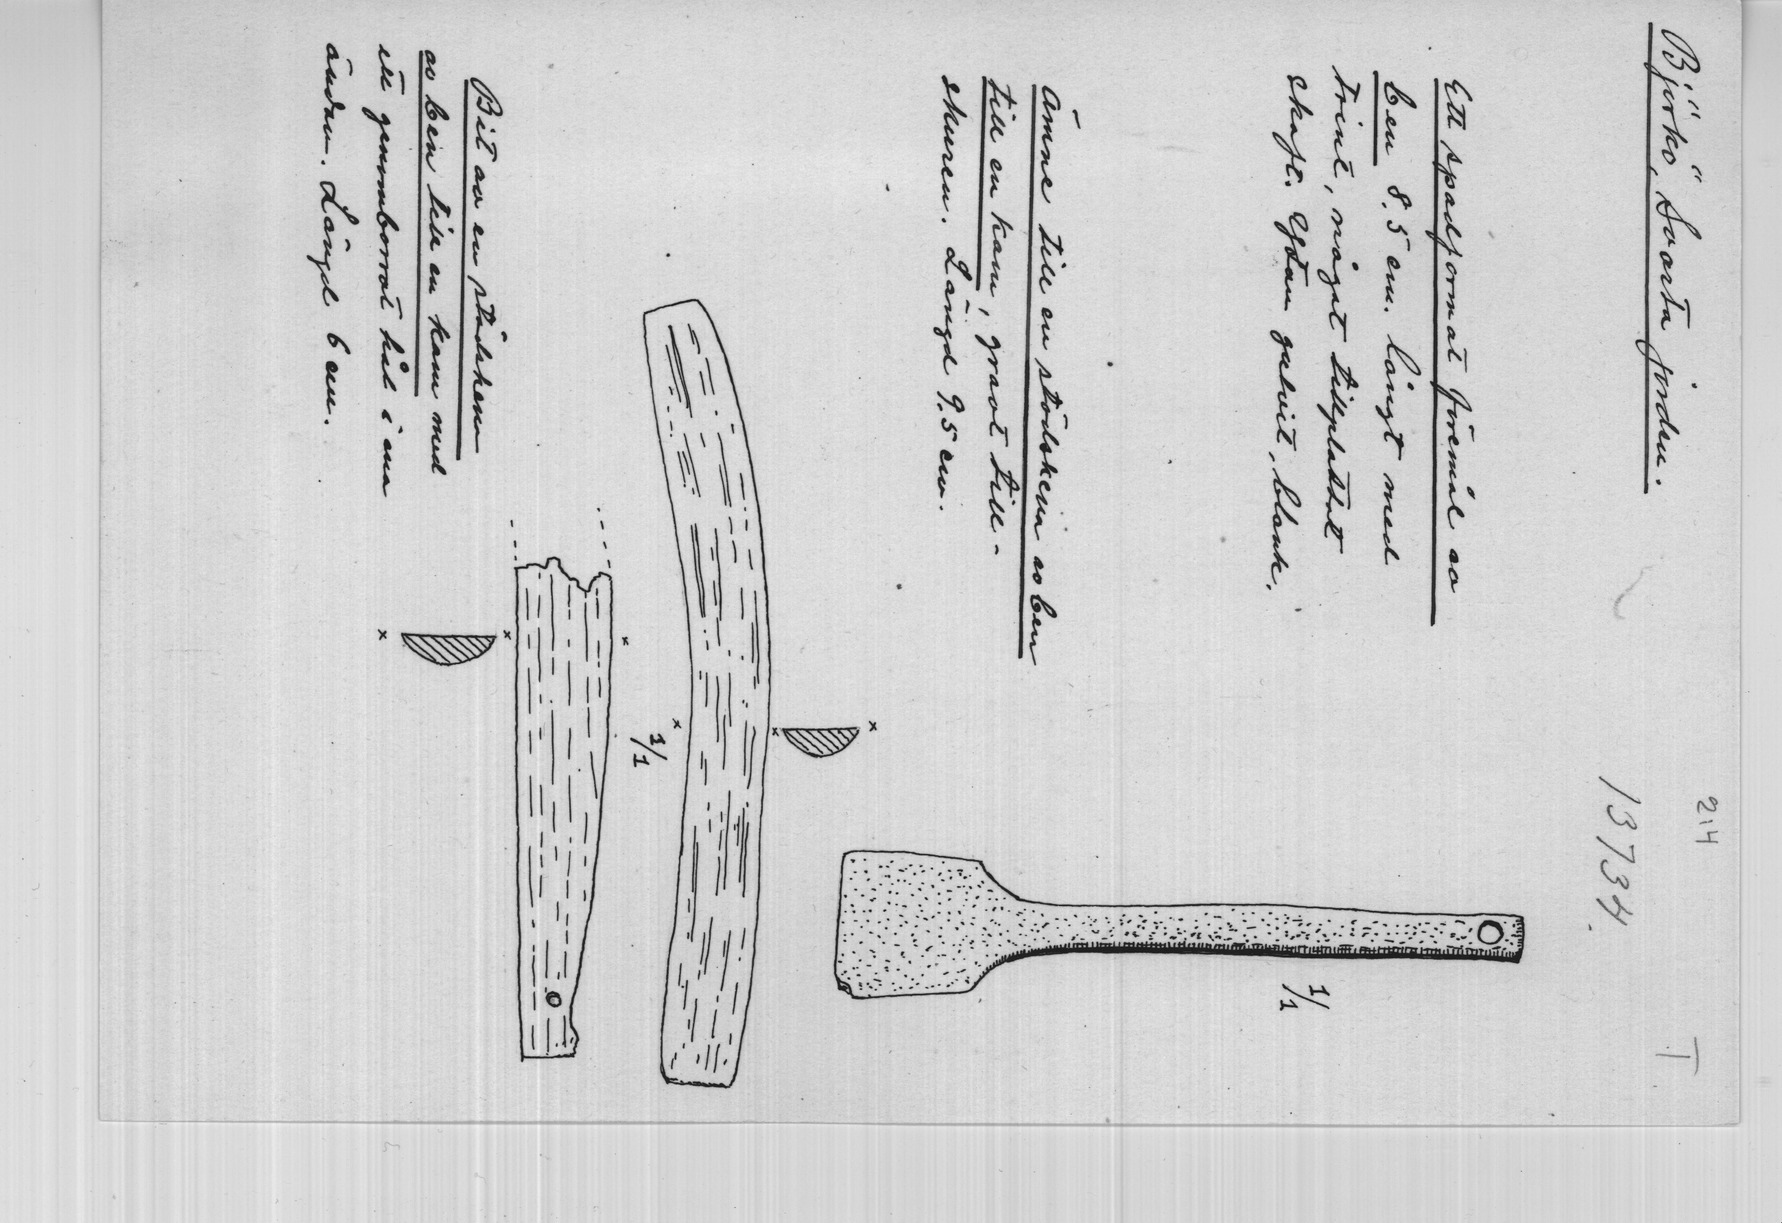 214
T
Björkö, Svarta jorden.
13734.
Ett spadformat föremål av
ben 8,5 cm. långt med
trint, något tillplattat
skaft. Ytan gulvit, blank.
1/1
Ämne till en stödskena av ben
till en kam, grovt till-
skuren. Längd 9,5 cm.
x x
x
1/1
Bit av en stödskena
av ben till en kam med
ett genomborrat hål i ena
ändan. Längd 6 cm.
x x x